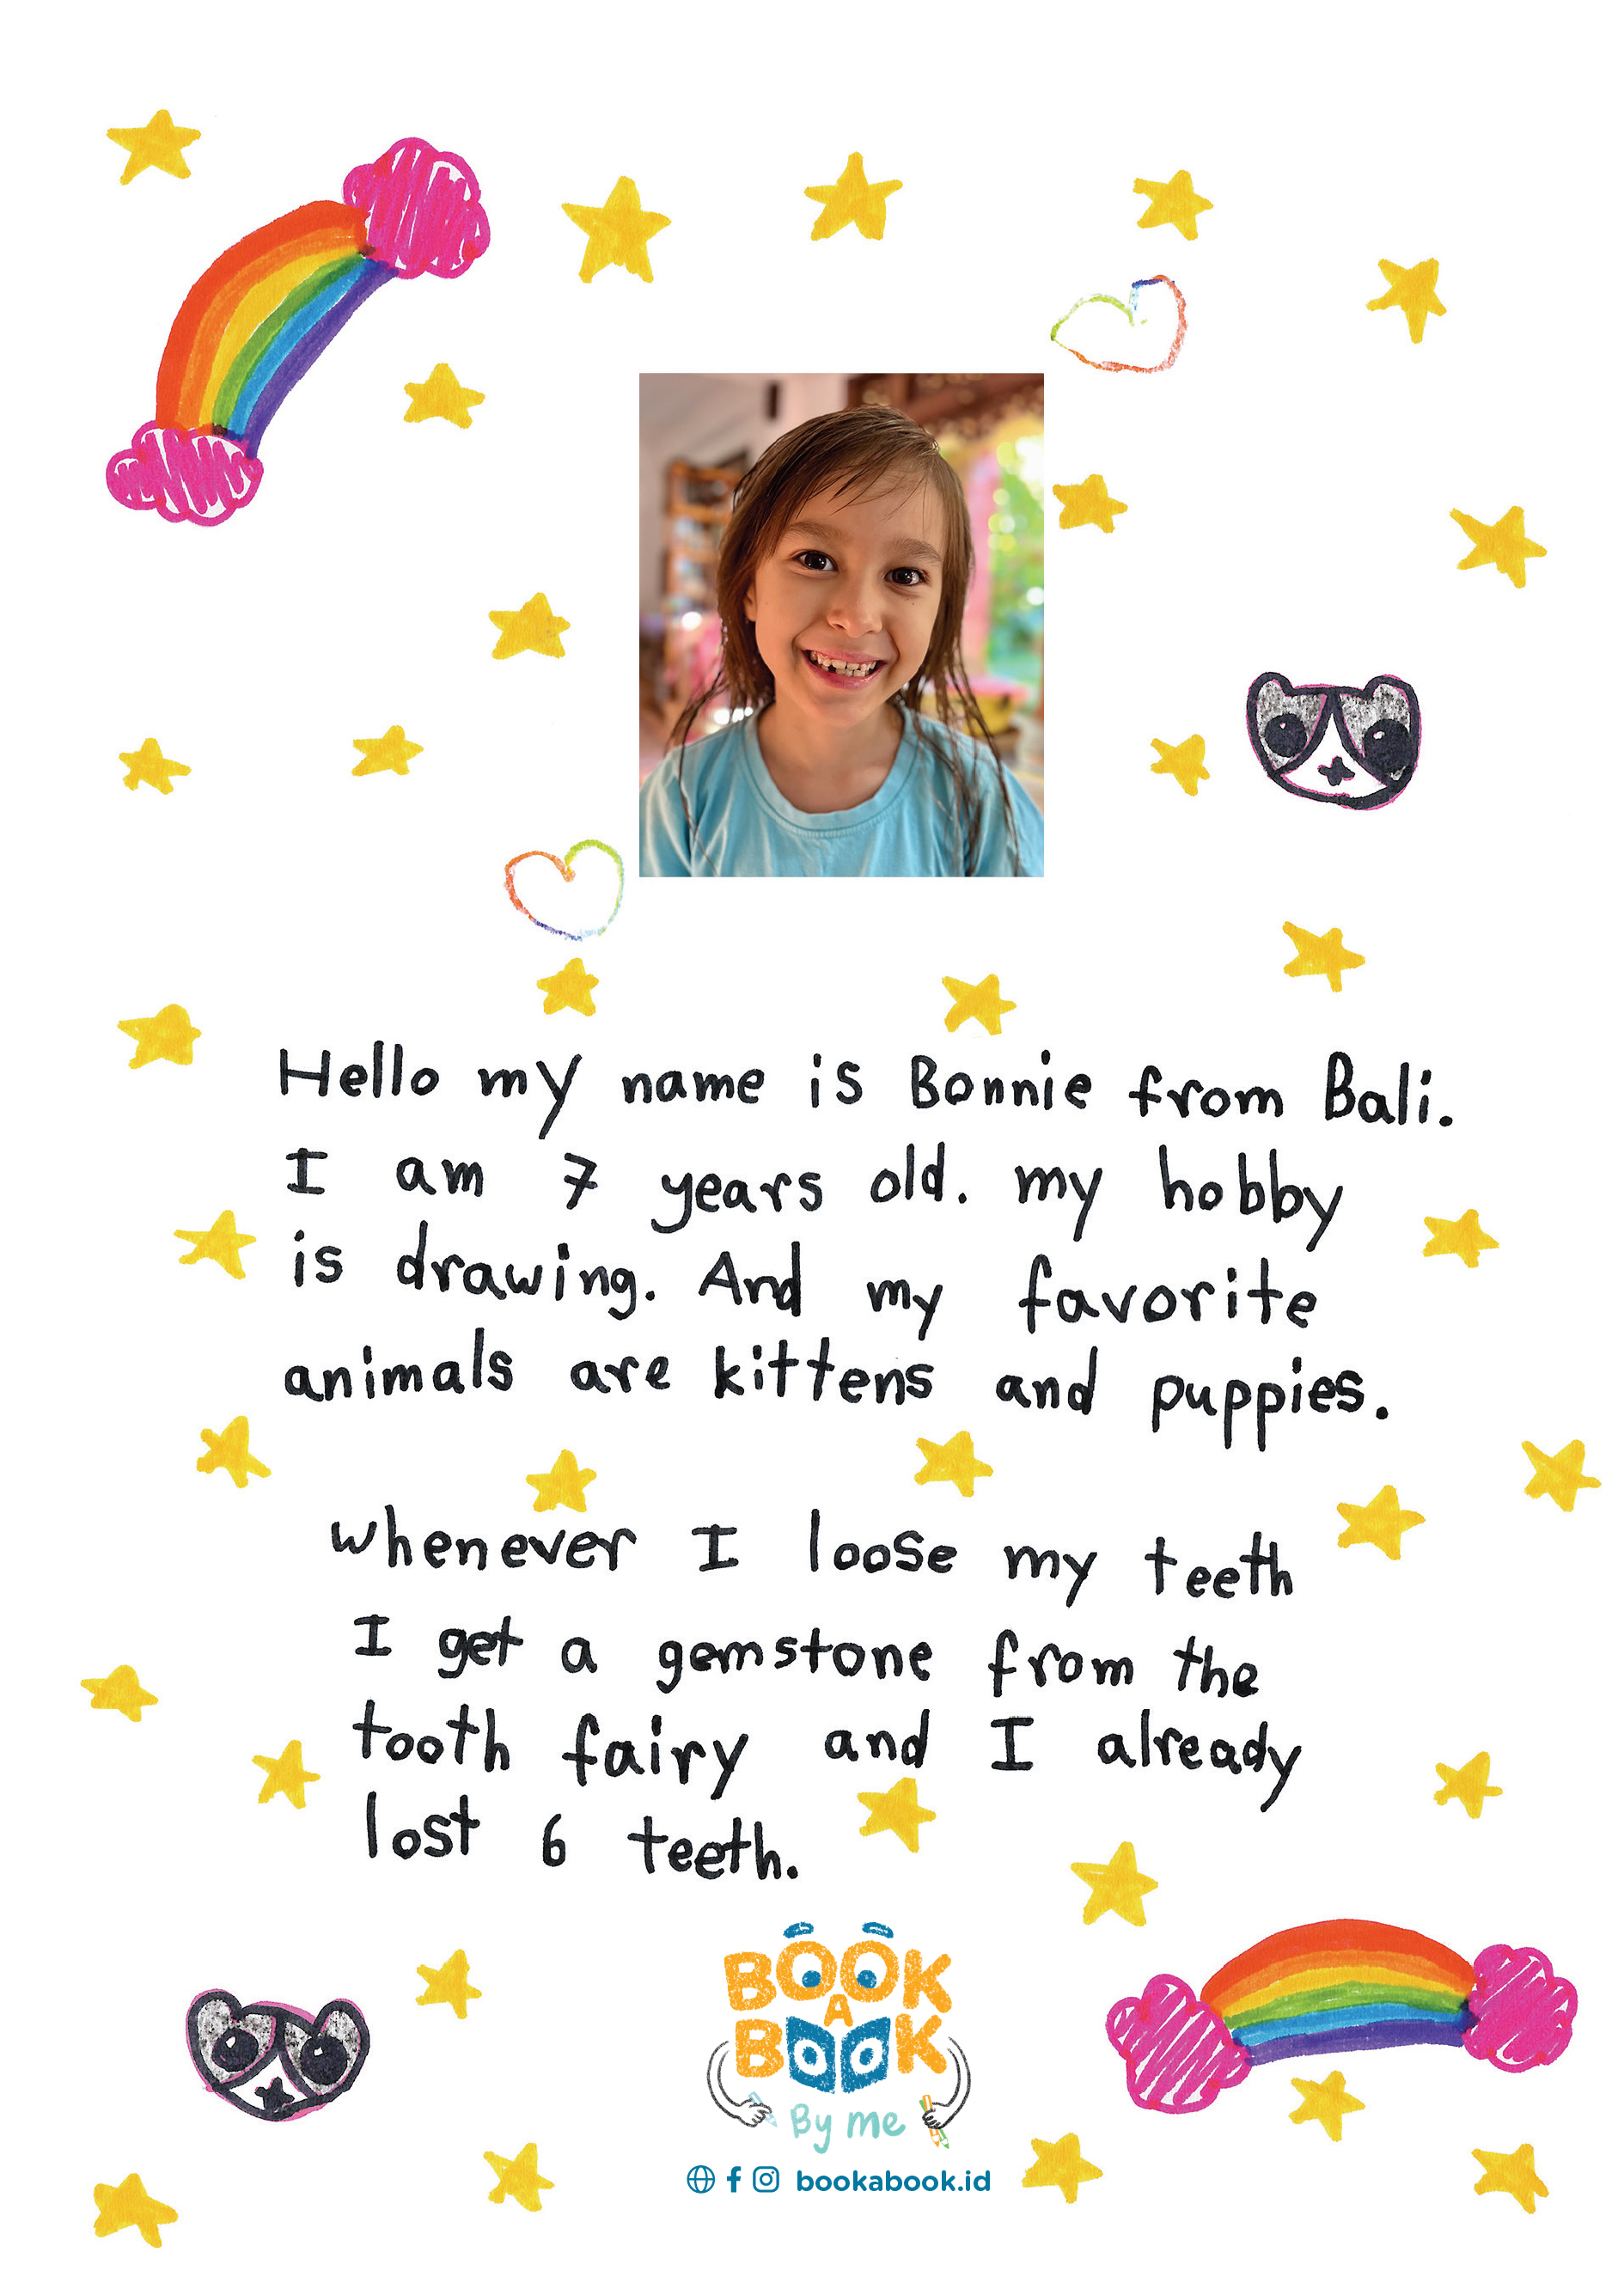 Hello my name is Bonnie from Bali.
I am 7 years old. my hobby
is drawing. And my favorite
animals are kittens and puppies.
whenever I loose my teeth
I get a gemstone from the
tooth fairy and I already
lost 6 teeth.
BOOK
A
BOOK
By me
bookabook.id